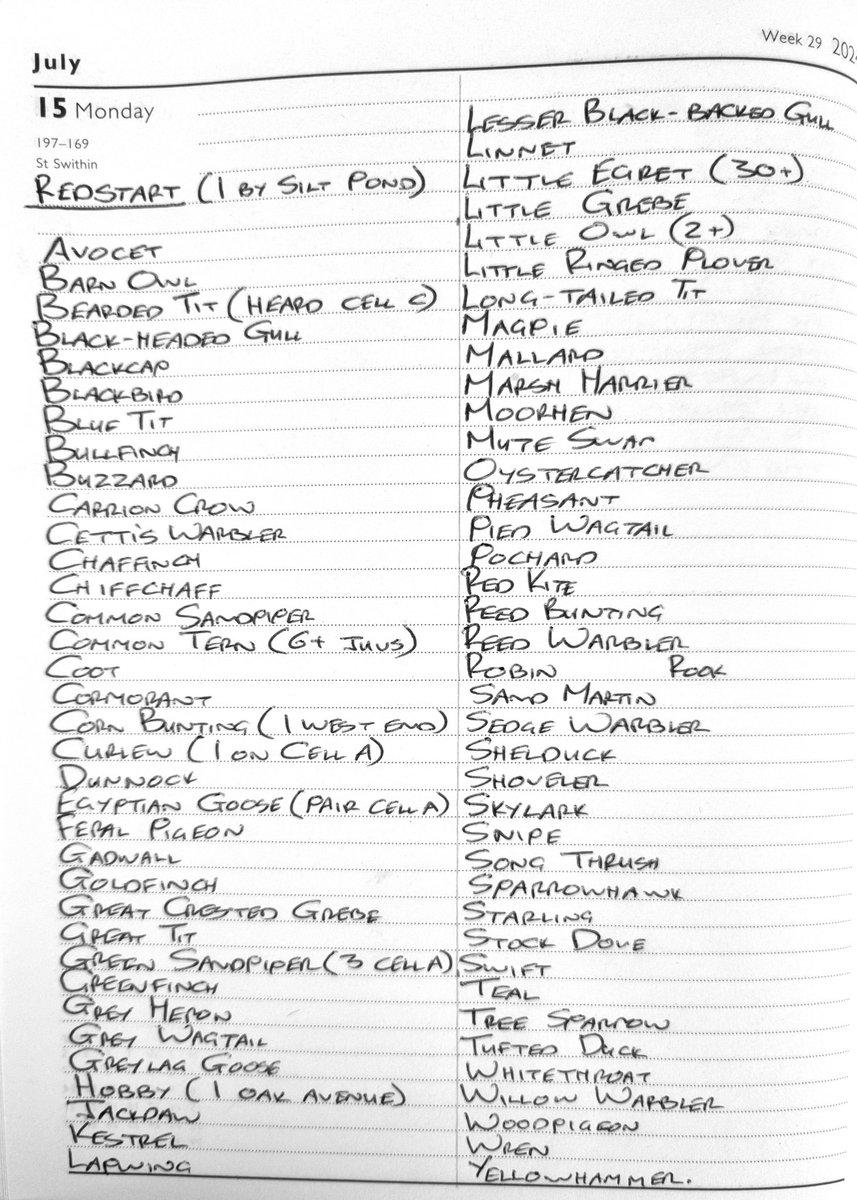 July
Week 29 202
15 Monday
197–169
St Swithin
REDSTART (1 BY SILT POND)
AVOCET
BARN OWL
BEARDED TIT (HEARD CELL C)
BLACK-HEADED GULL
BLACKCAP
BLACKBIRD
BLUE TIT
BULLFINCH
BUZZARD
CARRION CROW
CETTI'S WARBLER
CHAFFINCH
CHIFFCHAFF
COMMON SANDPIPER
COMMON TERN (6+ JUVS)
COOT
CORMORANT
CORN BUNTING (1 WEST END)
CURLEW (1 ON CELL A)
DUNNOCK
EGYPTIAN GOOSE (PAIR CELL A)
FERAL PIGEON
GADWALL
GOLDFINCH
GREAT CRESTED GREBE
GREAT TIT
GREEN SANDPIPER (3 CELL A)
GREENFINCH
GREY HERON
GREY WAGTAIL
GREYLAG GOOSE
HOBBY (1 OAK AVENUE)
JACKDAW
KESTREL
LAPWING
LESSER BLACK-BACKED GULL
LINNET
LITTLE EGRET (30+)
LITTLE GREBE
LITTLE OWL (2+)
LITTLE RINGED PLOVER
LONG-TAILED TIT
MAGPIE
MALLARD
MARSH HARRIER
MOORHEN
MUTE SWAN
OYSTERCATCHER
PHEASANT
PIED WAGTAIL
POCHARD
RED KITE
REED BUNTING
REED WARBLER
ROBIN ROOK
SAND MARTIN
SEDGE WARBLER
SHELDUCK
SHOVELER
SKYLARK
SNIPE
SONG THRUSH
SPARROWHAWK
STARLING
STOCK DOVE
SWIFT
TEAL
TREE SPARROW
TUFTED DUCK
WHITETHROAT
WILLOW WARBLER
WOODPIGEON
WREN
YELLOWHAMMER.